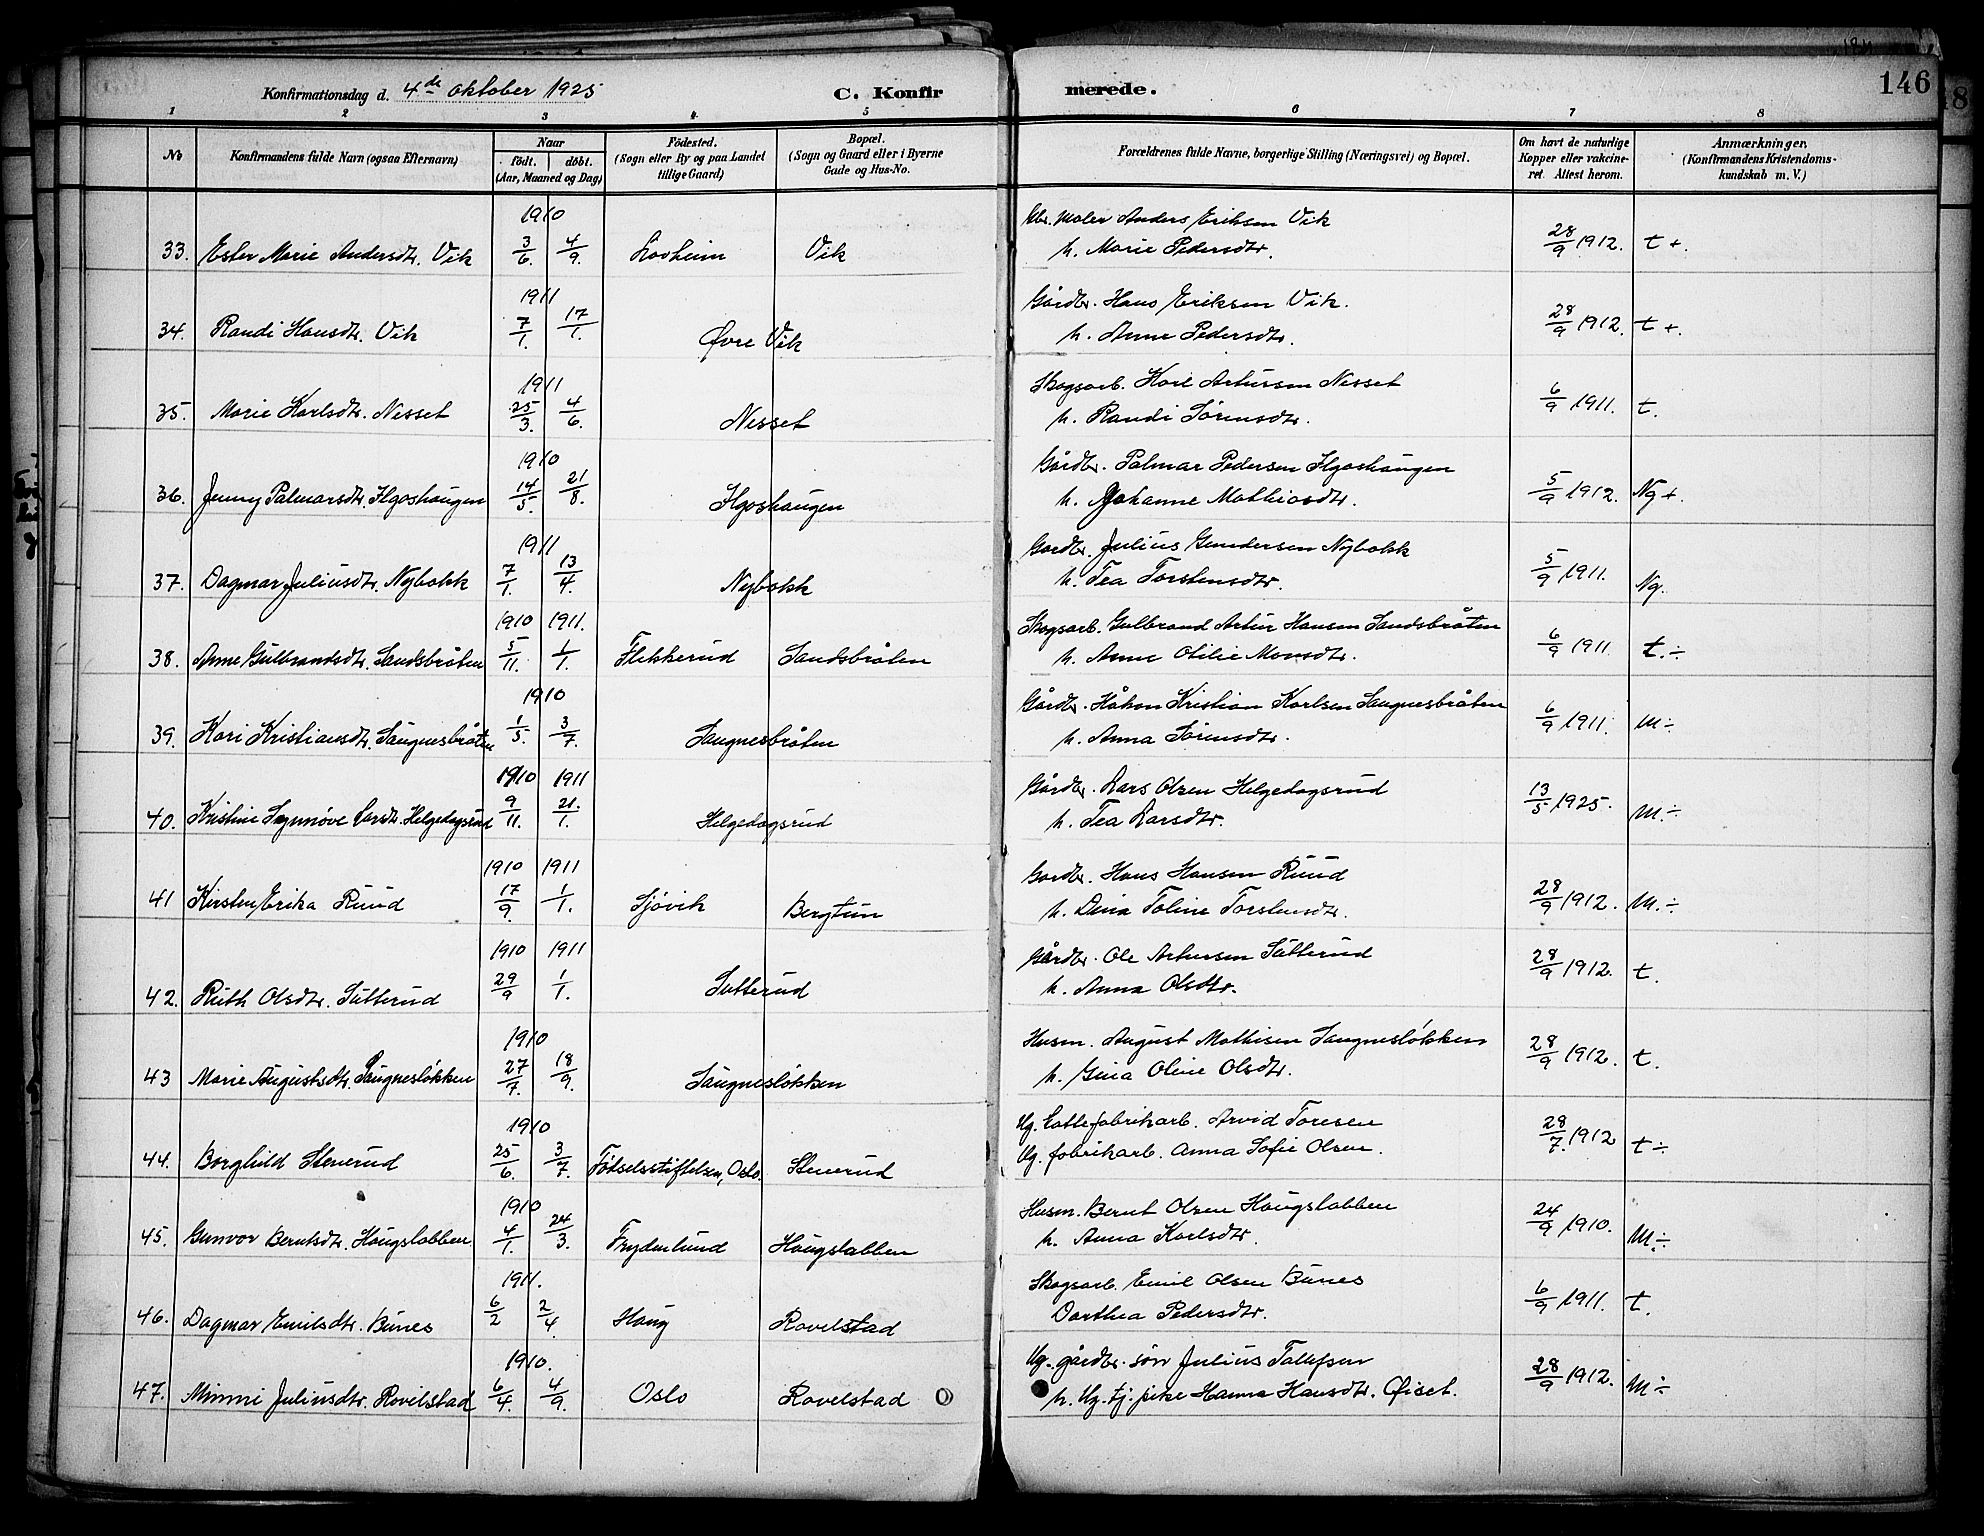 146
Konfirmationsdag d. 4de oktober 1925 C. Konfirmerede.
1 2 3 4. 5 6 7 8
No Konfirmandens fulde Navn (ogsaa Efternavn) Naar født. døbt. (Aar, Maaned og Dag) Fødested. (Sogn eller By og paa Landet tillige Gaard) Bopæl. (Sogn og Gaard eller i Byerne Gade og Hus-No. Forældrenes fulde Navne, borgerlige Stilling (Næringsvei) og Bopæl. Om havt de naturlige Kopper eller vakcineret. Attest herom. Anmærkninger. (Konfirmandens Kristendomskundskab m. V.)
1910 maler Anders Eriksen Vik
33. Ester Marie Andersdtr. Vik 3/6. 4/9. Lovheim Vik h. Marie Pedersdtr. 28/9 1912. t +.
1911 Gårdbr. Hans Eriksen Vik.
34. Randi Hansdtr. Vik 7/1. 17/1. Øvre Vik h. Anne Pedersdtr. 28/9 1912. t +.
1911 Skogsarb. Karl Artursen Nesset
35. Marie Karlsdtr. Nesset 25/3. 4/6. Nesset h. Randi Sørensdtr. 6/9 1911. t.
1910 Gårdbr. Palmar Pedersen Ilgoshaugen
36. Jenny Palmarsdtr. Ilgoshaugen 14/5. 21/8. Ilgoshaugen h. Johanne Mathiasdtr. 5/9 1912. Ng +.
1911 Gardbr. Julius Gundersen Nybakk
37. Dagmar Juliusdtr. Nybakk 7/1. 13/4. Nybakk h. Tea Torstensdtr. 5/9 1911. Ng.
1910 1911. Skogsarb. Gulbrand Artur Hansen Sandsbråten
38. Anne Gulbrandsdtr. Sandsbråten 5/11. 1/1. Flekkerud Sandsbråten h. Anne Otilie Monsdtr. 6/9 1911 t. ÷
1910 Gårdbr. Håkon Kristian Karlsen Saugnesbråten
39. Kari Kristiansdtr. Saugnesbråten 1/5. 3/7. Saugnesbråten h. Anna Sørensdtr. 6/9 1911. M ÷
1910 1911 Gårdbr. Lars Olsen Helgedagsrud
40. Kristine Synnøve Larsdtr. Helgedagsrud 9/11. 21./1. Helgedagsrud h. Tea Larsdtr. 13/5 1925. M. ÷
1910 1911 Gardbr. Hans Hansen Ruud
41 Kirsten Erika Ruud 17/9. 1/1. Sjøvik Bergtun h. Dina Toline Torstensdtr. 28/9 1912. M. ÷
1910 1911 Gårdbr. Ole Artursen Sutterud
42. Ruth Olsdtr. Sutterud 29/9 1/1. Sutterud h. Anna Olsdtr. 28/9 1912. t.
1910 Husm. August Mathisen Saugnesløkken
43 Marie Augustsdtr. Saugnesløkken 27/7. 18/9. Saugnesløkken h. Gina Oline Olsdtr. 28/9 1912. t.
1910 Ug. fabrikarb. Arvid Toresen
44. Borghild Stenerud 25/6. 3/7. Fødselsstiftelsen, Oslo. Stenerud Ug. fabrikarb. Anna Sofie Olsen. 28/7. 1912 t ÷
1910 Husm. Bernt Olsen Haugslabben
45. Gunvor Berntsdtr. Haugslabben. 4/1. 24/3. Frydenlund Haugslabben h. Anna Karlsdtr. 24/9 1910. M. ÷
1911. Skogsarb. Emil Olsen Bunes
46. Dagmar Emilsdtr. Bunes 6/2 2/4. Haug Rovelstad Dorthea Pedersdtr. 6/9 1911. t.
1910. Ug. gårdbr. søn Julius Tollefsen
47. Mimmi Juliusdtr. Rovelstad 6/4. 4/9. Oslo Rovelstad h. Ug. tj. pike Hanna Hansdtr. Øiset. 28/9 1912. M ÷